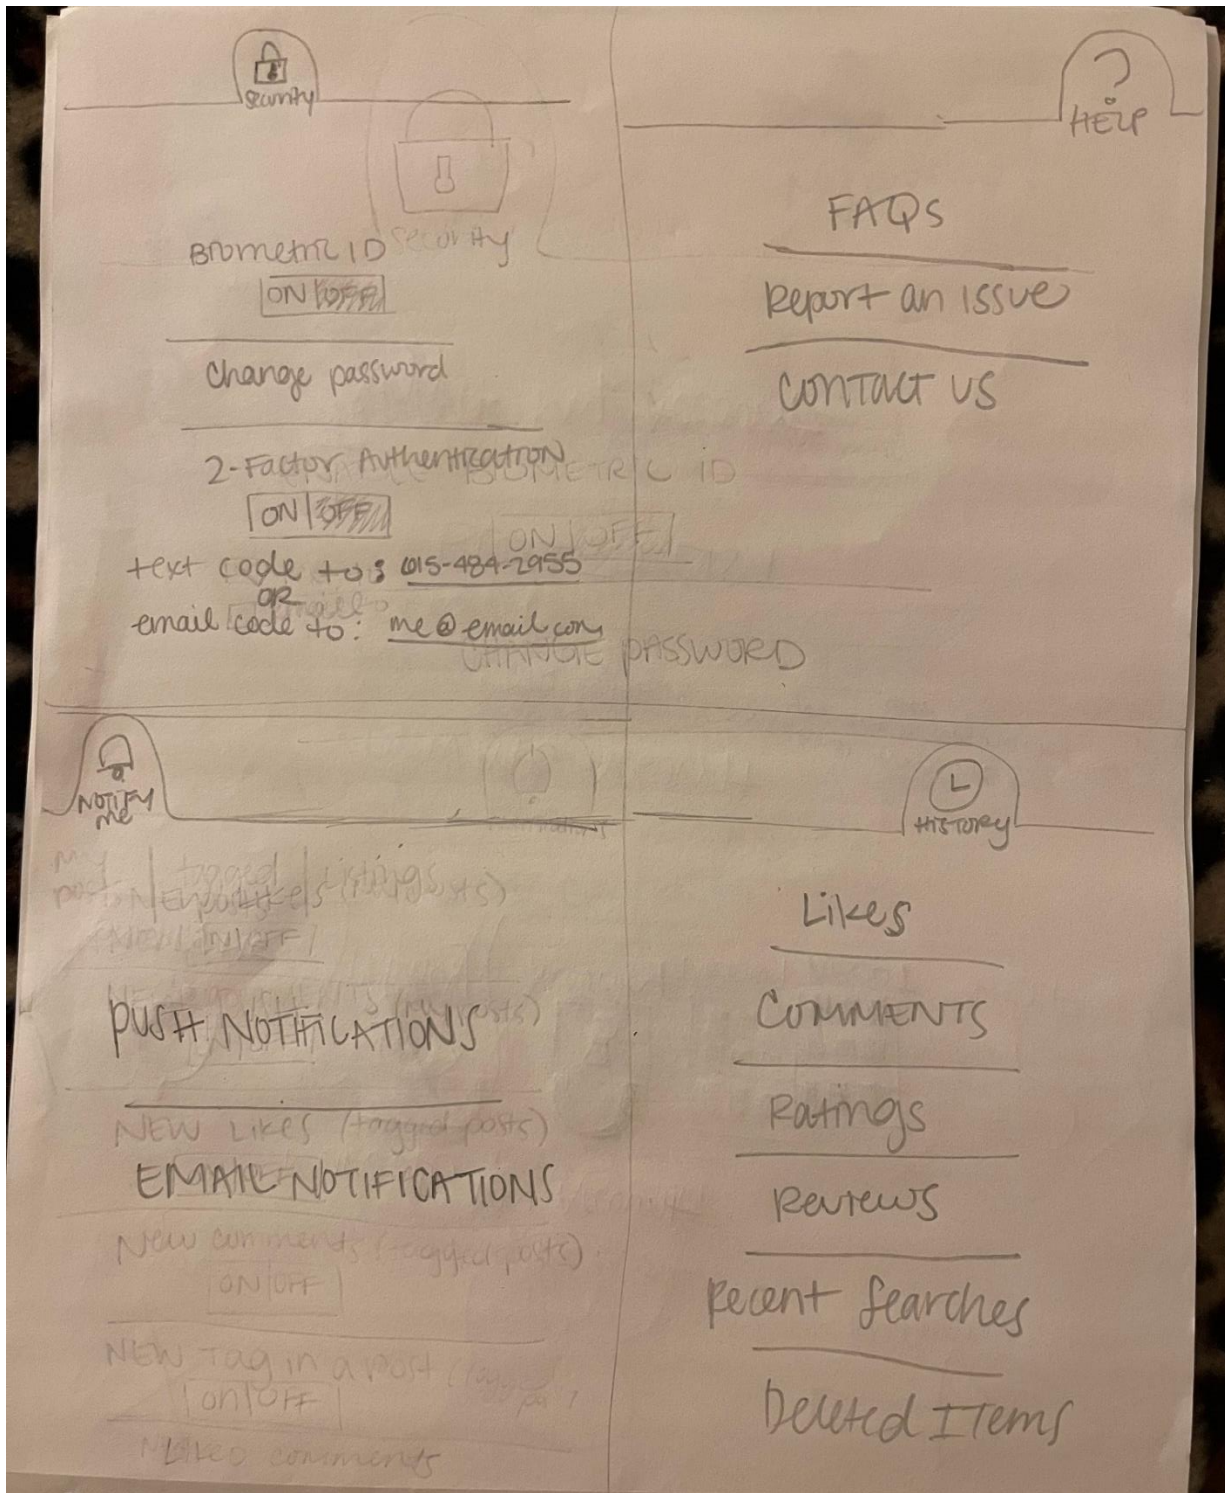 security
Biometric ID
ON OFF
change password
2-Factor Authentication
ON OFF
text code to: 615-484-2955
OR
email code to: me@email.com
security
BIOMETRIC ID
ON OFF
CHANGE PASSWORD
?
HELP
FAQs
Report an issue
Contact us
NOTIFY
me
my posts tagged posts listings
NEW Likes (my posts)
ON/OFF
NEW COMMENTS (my posts)
PUSH NOTIFICATIONS
NEW Likes (tagged posts)
EMAIL NOTIFICATIONS
New comments (tagged posts)
ON/OFF
NEW Tag in a post
on/OFF
Liked comments
HISTORY
Likes
COMMENTS
Ratings
Reviews
Recent Searches
Deleted Items